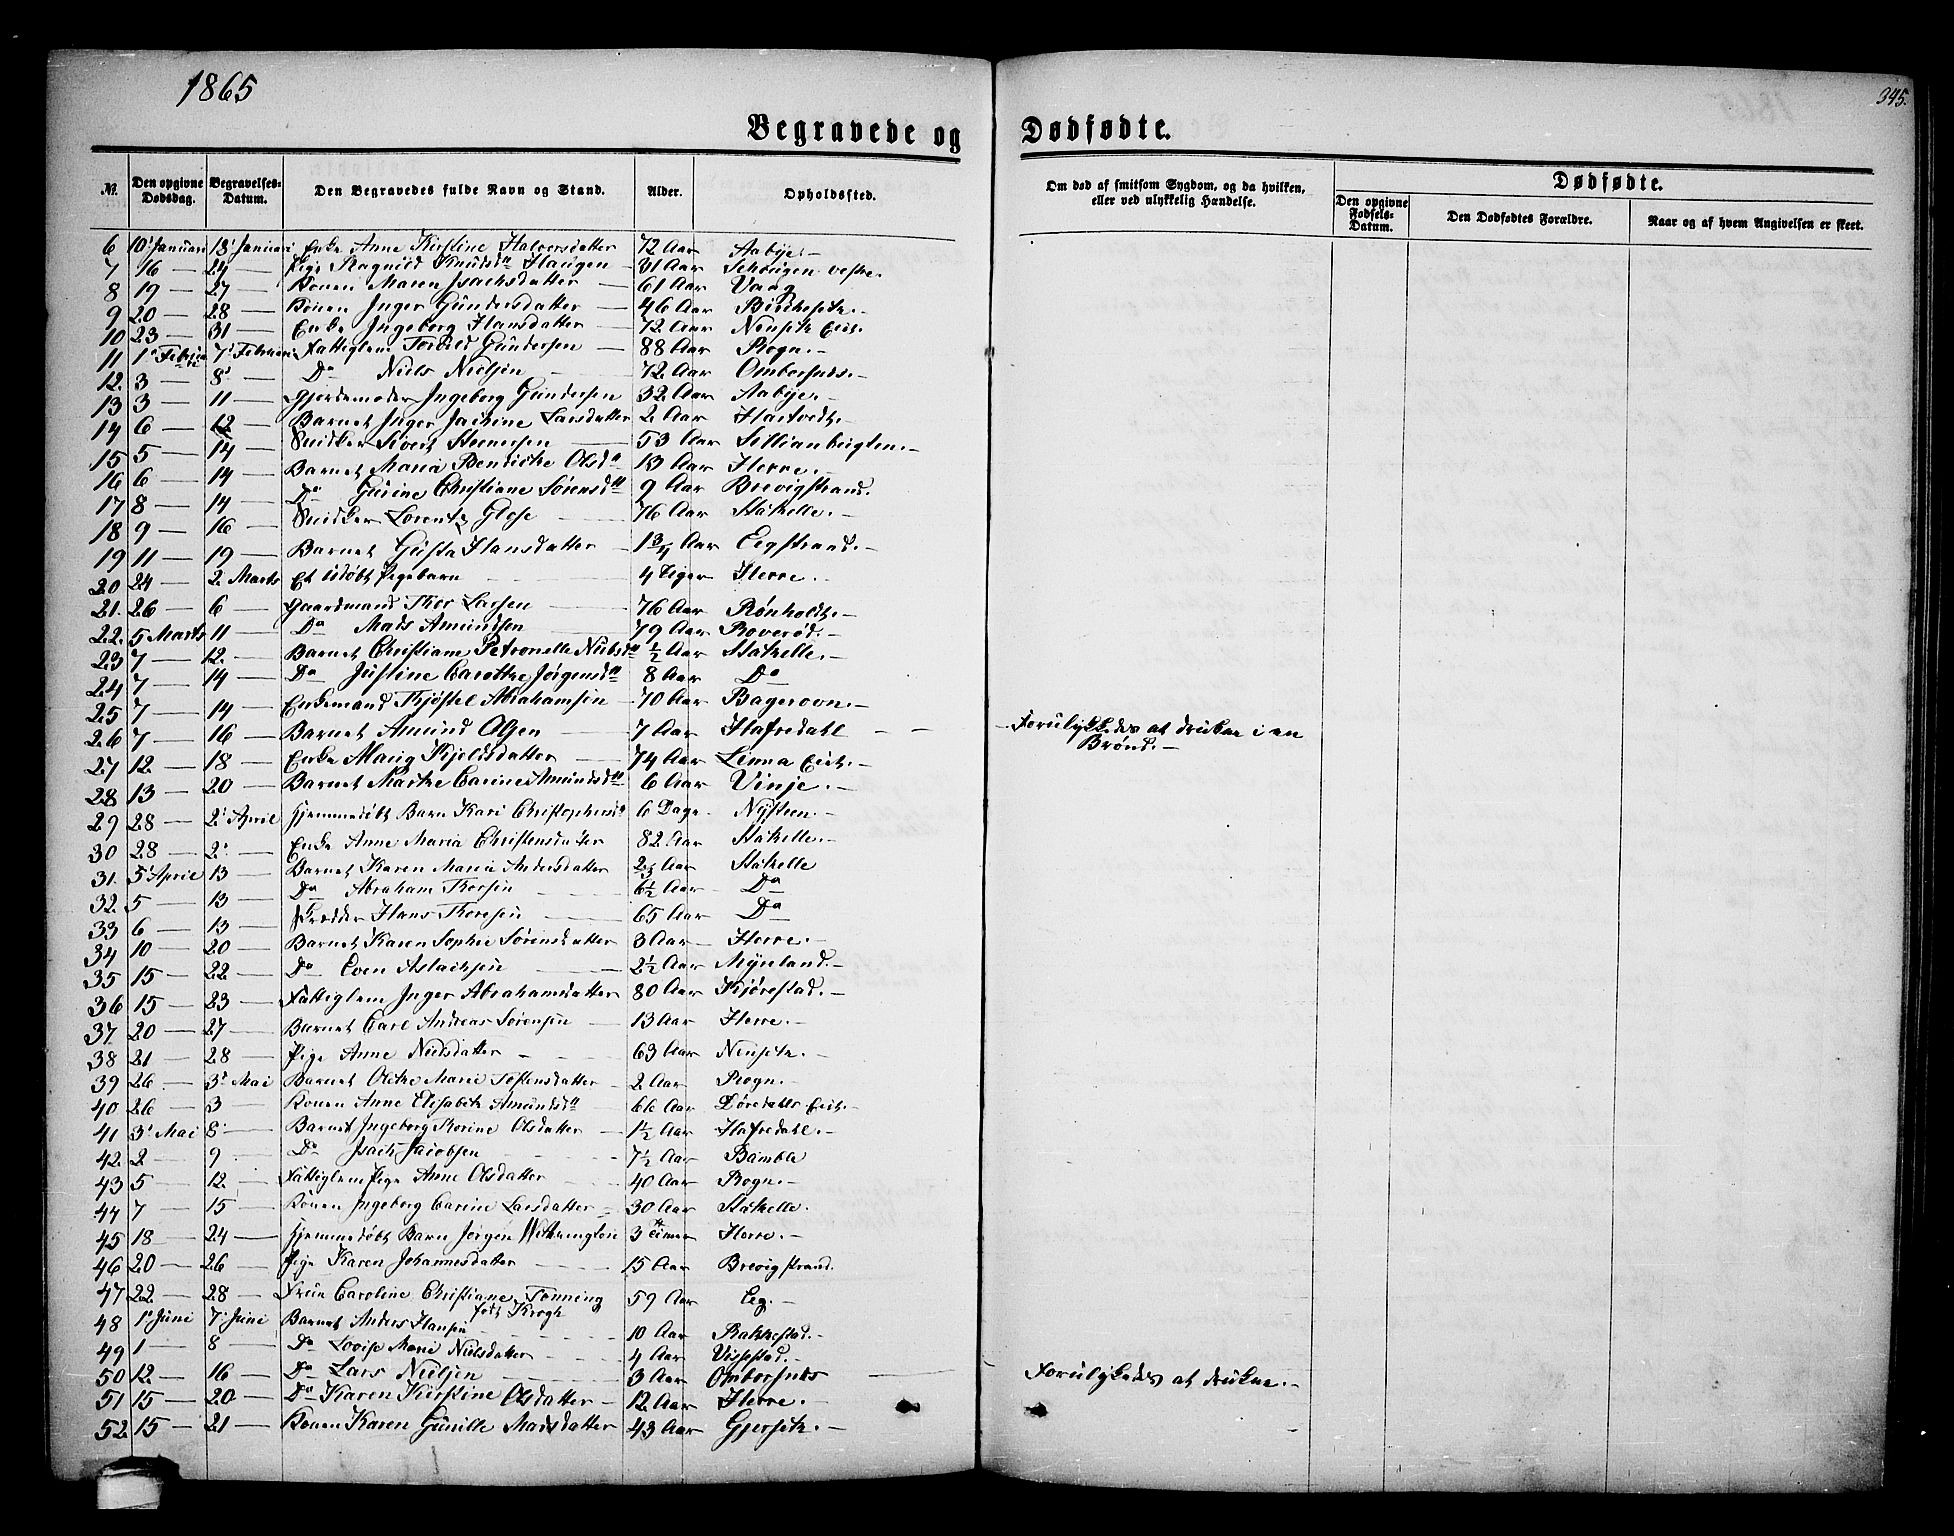 1865
345.
Begravede og Dødfødte.
№.
Den opgivne Dødsdag.
Begravelses-Datum.
Den Begravedes fulde Navn og Stand.
Alder.
Opholdssted.
Om død af smitsom Sygdom, og da hvilken, eller ved ulykkelig Hændelse.
Dødfødte.
Den opgivne Fødsels-Datum.
Den Dødfødtes Forældre.
Naar og af hvem Angivelsen er skeet.
6 10' Januari 13' Januari Enke Anne Kirstine Halvorsdatter 72 Aar Aabye.-
7 16 — 24 — Pige Ragnild Knudsdtr Haugen 31 Aar vestre.
8 19 — 27 — Konen Maren Isachsdatter — 61 Aar Vaag
9 20 — 28 — Konen Inger Gundersdatter — 46 Aar
10 23 — 31 — Enke Ingeborg Hansdatter — 72 Aar Eiet.
11 1' Februari 7' Februari Fattiglem Gundersen — 88 Aar Rogn.-
12. 3 — 8' — Do Niels Nielsen — 72 Aar Ombordsnes.-
13 3 — 11 — Gjordemoder Ingeborg Gundersen 32 Aar Aabye.-
14 6 — 12 — Barnet Inger Larsdatter 2 Aar Hartvedt.-
15 5 — 14 — Snidker Sivert 53 Aar
16 6 — 14 — Barnet Maria Olsdtr 13 Aar Herre.-
17 8 — 14 — Do Gurine Christiane Sørensdtr 9 Aar Brevigstrand.
18 9 — 16 — Snidker Lorentz 76 Aar Stathelle.-
19 11 — 19 — Barnet Hansdatter — 1 3/4 Aar Eegstrand.-
20 24 — 2. Marts Et udøbt Pigebarn — 4 Herre.-
21. 26 — 6 — Gaardmand Thor Larsen — 76 Aar Rønholdt.-
22. 5 Marts 11 — Do Mads Amundsen 79 Aar Roverød.-
23 7 — 12. — Barnet Christiane Petronelle Nielsdtr 1/2 Aar Stathelle.-
24 7 — 14 — Do Justine Jørgensdtr 8 Aar Do
25 7 — 14 — Enkemand Kjøstel Abrahamsen 70 Aar Bagerovn.-
26 7 — 16 — Barnet Amund Olsen — 7 Aar Hafredahl — Forulykkedes at drukne i en Brønd.-
27 12. — 18 — Enke Kjeldsdatter — 74 Aar Linna Eiet.-
28 13 — 20 — Barnet Carine Amundsdtr 6 Aar Vinje.-
29 28 — 2' April Hjemmedøbt Barn Kari Christophersdtr 6 Dage
30 28 — 2' — Enke Anne Maria Christensdatter 82 Aar Stathelle.-
31. 5' April 13 — Barnet Karen Maria Andersdatter Aar Stathelle
32. 5 — 13 — Do Abraham Thorsen — 6 1/2 Aar Do
33 6 — 13 — Hans Thoresen — 65 Aar Do
34 10 — 20 — Barnet Karen Sophie Sørensdatter 3 Aar Herre.-
35 15 — 22 — Do Even Aslachsen — 2 1/2 Aar
36 15 — 23 — Fattiglem Inger Abrahamsdatter 80 Aar Kjørestad.-
37. 20 — 27 — Barnet Carl Andreas Sørensen — 13 Aar Herre.-
38 21 — 28 — Pige Anne Nielsdatter — 63 Aar
39 26 — 3' Mai Barnet Marie Tostensdatter — 2 Aar Rogn.-
40 26 — 3 — Konen Anne Elisabeth Amundsdtr — 66 Aar Eiet.-
41 3' Mai 8' — Barnet Ingeborg Thorine Olsdatter — 1 1/2 Aar Hafredahl.-
42. 2 — 9 — Do Isach Jacobsen — 7 1/2 Aar Bamble
43 5 — 12 — Fattiglem Pige Anne Olsdatter — 40 Aar Rogn.-
44 7 — 15 — Konen Ingeborg Carine Larsdatter — 30 Aar Stathelle.
45 18 — 24 — Hjemmedøbt Barn Jørgen 3 Timer Herre.-
46 20 — 26 — Pige Karen Johannesdatter — 15 Aar Brevigstrand.
47 22 — 28 — Fruen Caroline Christiane Tønning født Krogh 59 Aar Eeg.-
48 1' Juni 7' Juni Barnet Anders Hansen — 10 Aar Rakkestad.-
49 1 — 8 — Do Lovise Marie Nielsdatter 4 Aar Vissestad.-
50 12. — 16 — Do Lars Nielsen — 3 Aar Ombordsnes — Forulykkedes at drukne.-
51 15 — 20 — Do Karen Kirstine Olsdatter — 12 Aar Herre.-
52. 15 — 21 — Konen Karen Gunille Madsdatter 43 Aar